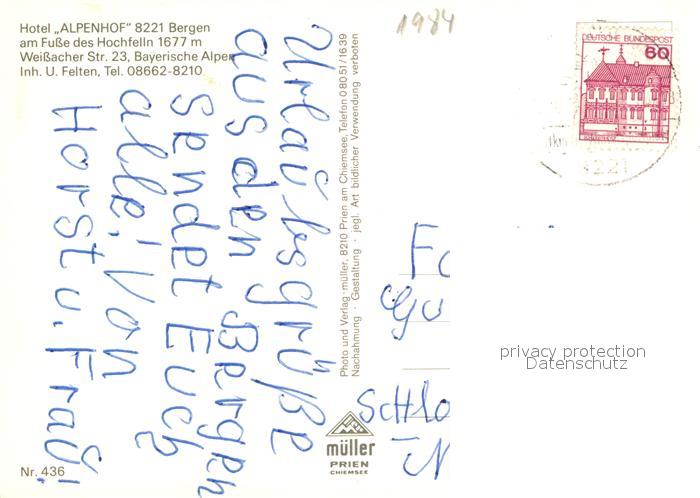 Hotel „ALPENHOF" 8221 Bergen
am Fuße des Hochfelln 1677 m
Weißacher Str. 23, Bayerische Alpen
Inh. U. Felten, Tel. 08662-8210
1984
DEUTSCHE BUNDESPOST
60
8221
Urlaubsgrüße
aus den Bergen
sendet Euch
alle! Von
Horst u. Frau!
Photo und Verlag -müller, 8210 Prien am Chiemsee, Telefon 08051/1639
Nachahmung · Gestaltung · jegl. Art bildlicher Verwendung verboten
Fa
Schlo
privacy protection
Datenschutz
müller
PRIEN
CHIEMSEE
Nr. 436